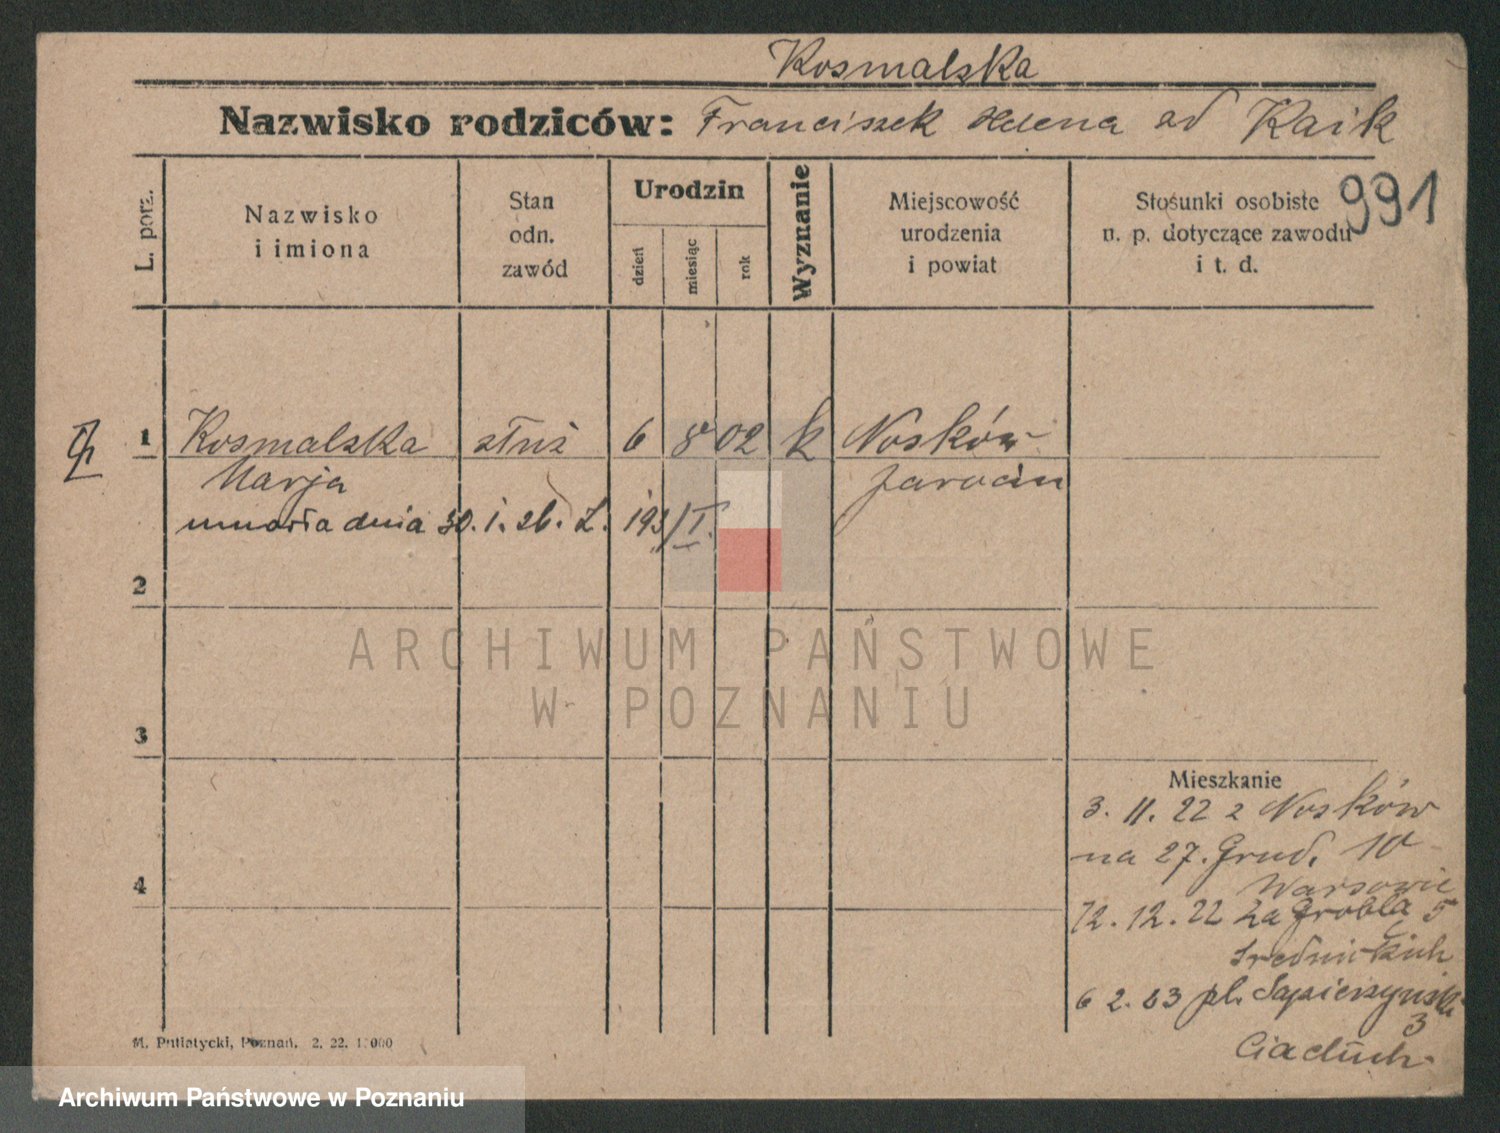 Kosmalska
Nazwisko rodziców: Franciszek Helena od Kaik
991
L. porz.
Nazwisko
i imiona
Stan
odn.
zawód
Urodzin
dzień
miesiąc
rok
Wyznanie
Miejscowość
urodzenia
i powiat
Stosunki osobiste
n. p. dotyczące zawodu
i t. d.
1 Kosmalska służ 6 8 02 k Nosków
Marja Jarocin
umarła dnia 30. 1. 26. L. 193/I.
2
ARCHIWUM PAŃSTWOWE
W POZNANIU
3
Mieszkanie
3. 11. 22 z Nosków
na 27. Grud. 10
4
12. 12. 22 Za Groblą 5
6 2. 23 pl. Sapierzyński
3
M. Putiatycki, Poznań. 2. 22. 1.000
Archiwum Państwowe w Poznaniu